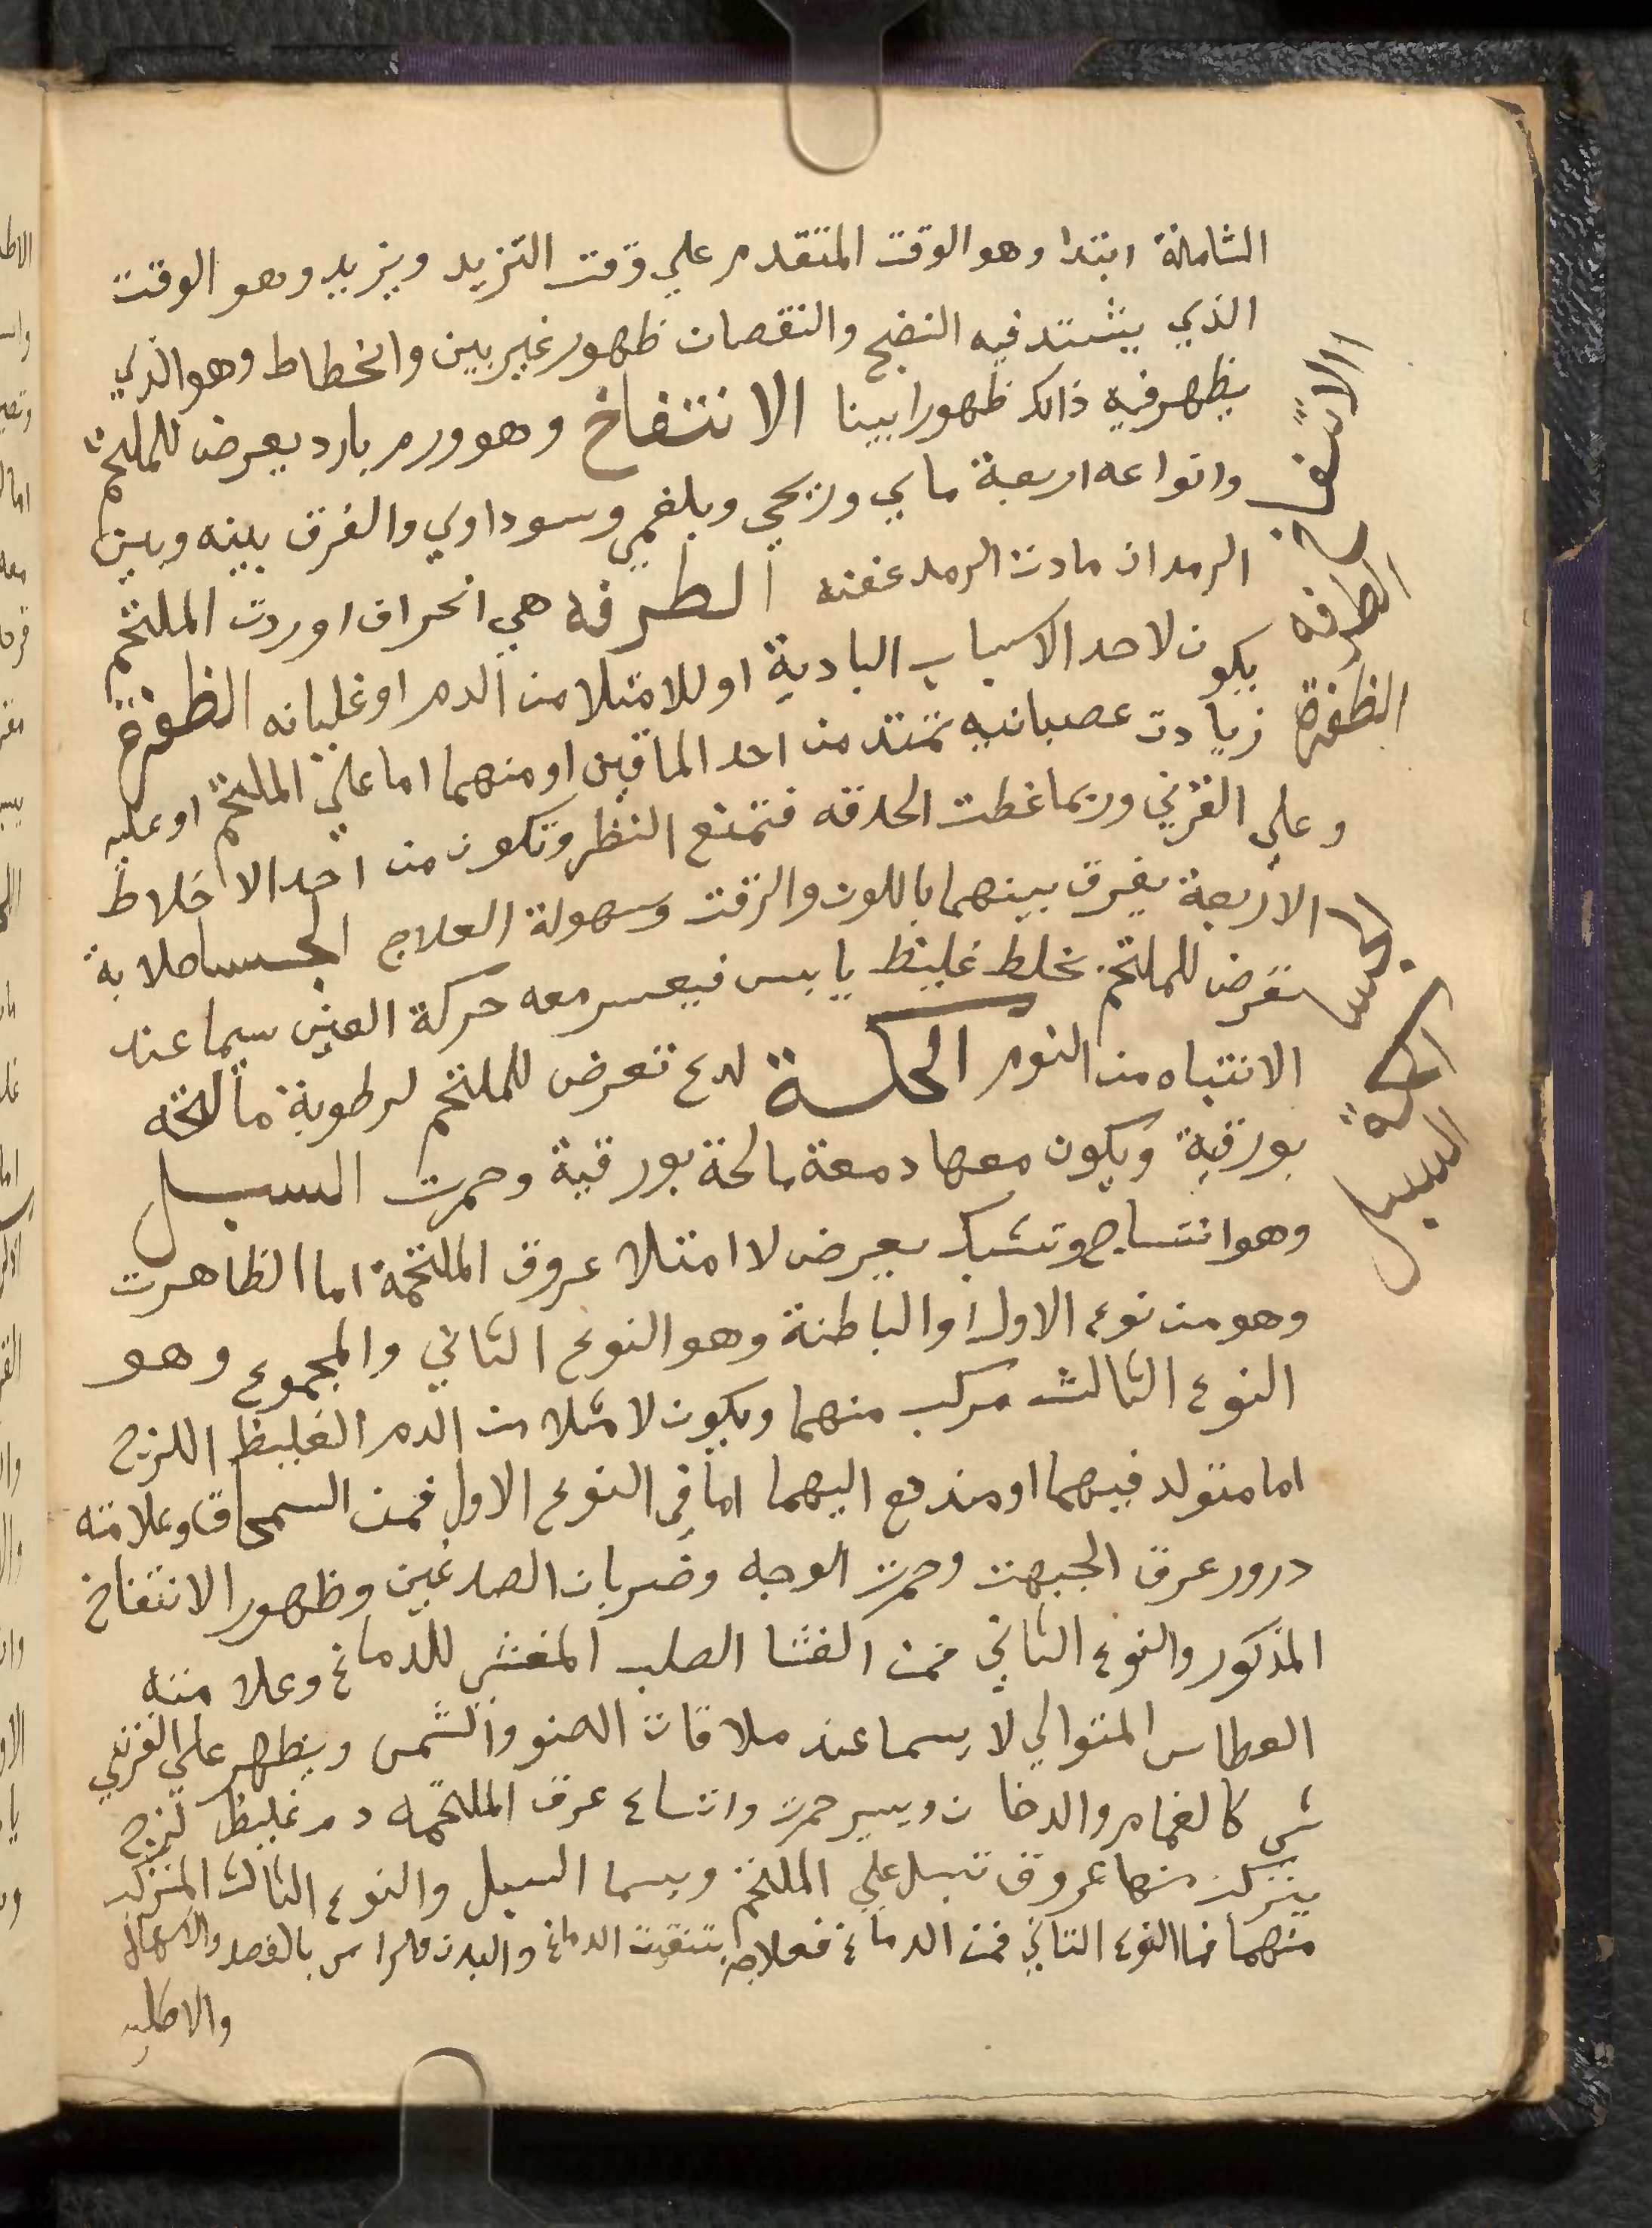 الشاملة ابتدا وهو الوقت المتقدم علي وقت التزيد ويزيد وهو الوقت
الذي يشتد فيه النضج والنقصان ظهور غير بين وانحطاط وهو الذي
يظهر فيه ذالك ظهورا بينا الانتفاخ وهو ورم بارد يعرض للملتحم
الانتفاخ
وانواعه اربعة ماي وريحي وبلغمي وسوداوي والفرق بينه وبين
الرمد ان مادت الرمد عفنه الطرفه هي انحراف اوردت الملتحم
الطرفه
يكون لاحد الاسباب البادية او للامتلا من الدم او غليانه الظفرة
الظفرة
زيادت عصبانيه تمتد من احد الماقين او منهما اما علي الملتحم او عليه
وعلي القرني وربما غطت الحدقه فتمنع النظر وتكون من احد الاخلاط
الاربعة يفرق بينهما باللون والرقت وسهولة العلاج الجسا صلابة
الجسا
تعرض للملتحم بخلط غليظ يابس فيعسر معه حركة العين سيما عند
الانتباه من النوم الحكة لدع تعرض للملتحم لرطوبة مالحة
الحكة
بورقية ويكون معها دمعة مالحة بورقية وحمرت السبل
السبل
وهو انتساج وتشبك يعرض لا امتلا عروق الملتحمة اما الظاهرت
وهو من نوع الاول او الباطنة وهو النوع الثاني والمجموع وهو
النوع الثالث مركب منهما ويكون لامتلا من الدم الغليظ اللزج
اما متولد فيهما او مندفع اليهما اما في النوع الاول فمن السمحاق وعلامته
درور عرق الجبهت وحمرت الوجه وضربان الصدغين وظهور الانتفاخ
المذكور والنوع الثاني فمن الغشا الصلب المغشي للدماغ وعلامته
العطاس المتوالي لا سيما عند ملاقات الضو والشمس ويظهر علي القرني
شي كالغمام والدخان ويسير حمرت واتساع عرق الملتحمه دم غليظ لزج
منها عروق تسبل علي الملتحم ويسما السبل والنوع الثالث المتركب
منهما فما النوع الثاني فمن الدماغ فعلاجه بتنقيت الدماغ والبدن والراس بالفصد والاسهال
والاطليه